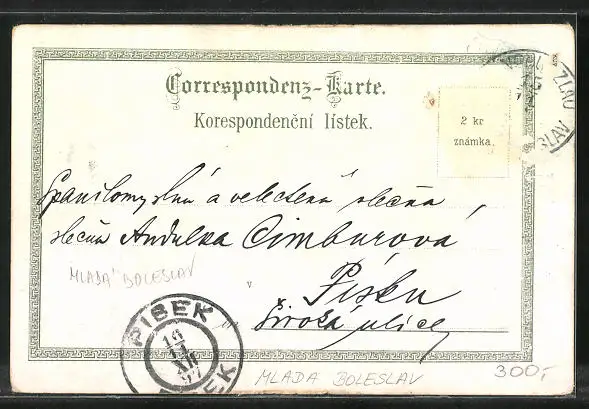 Correspondenz-Karte.
Korespondenční lístek.
2 kr
známka.
ZLAU
SLAV
Spanilomyslná a velectěná slečna,
slečna Andulka Cimburová
v Písku
Široká ulice
MLADÁ BOLESLAV
PISEK
XII
97
MLADA BOLESLAV
300,-